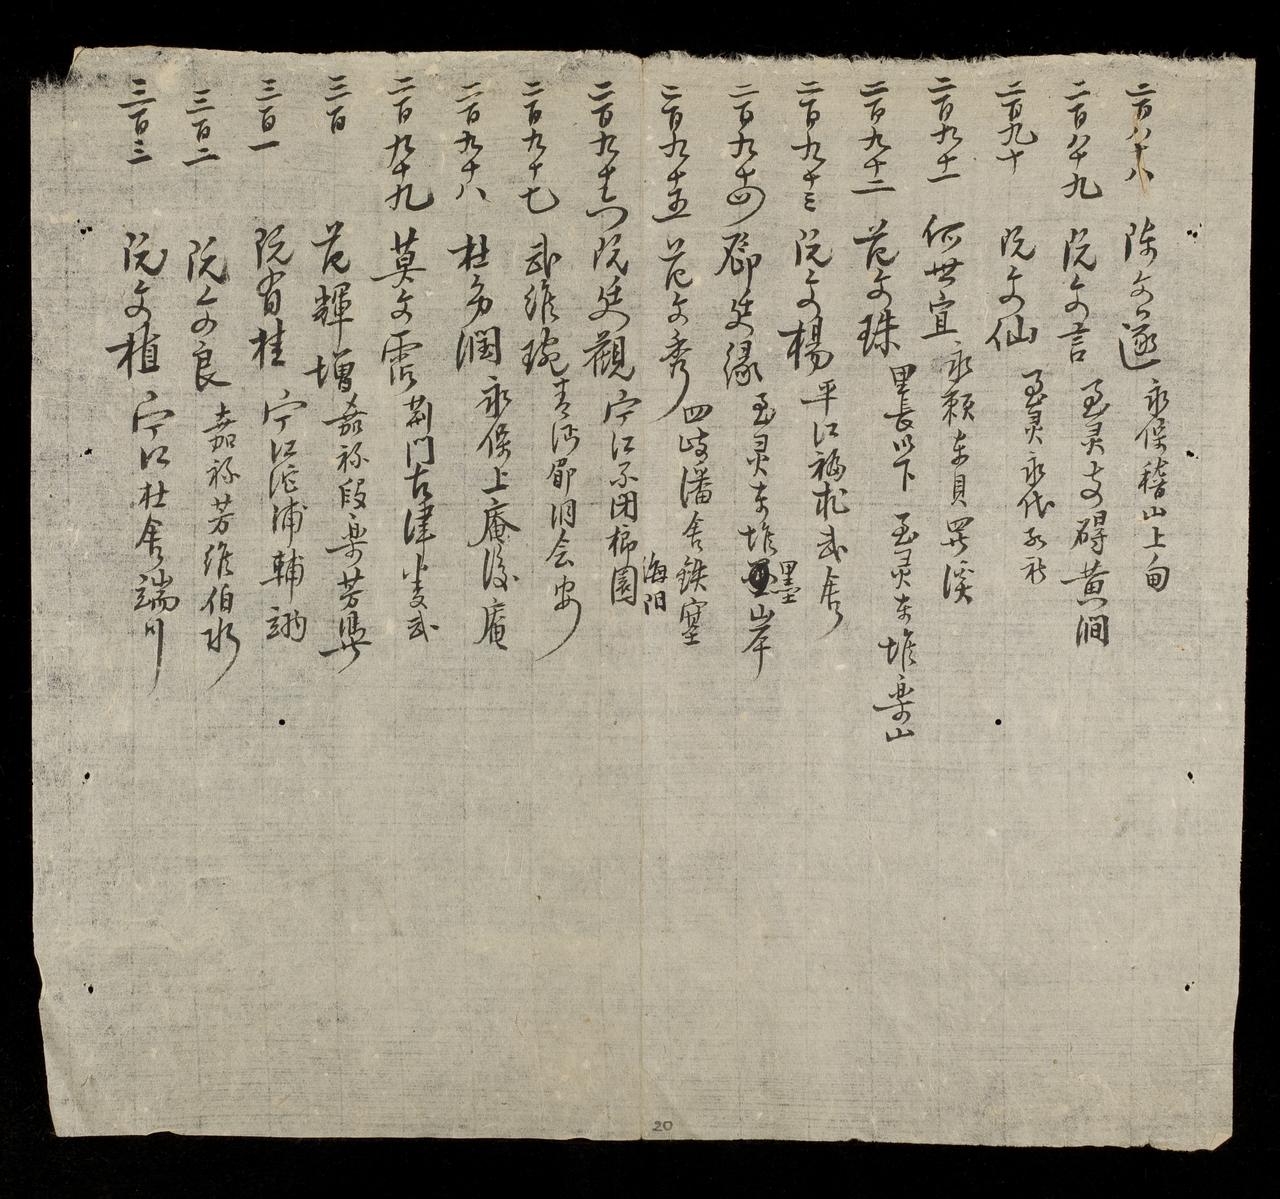 二百八十八 陳文遜 永保稽山上甸
二百八十九 阮文言 至灵支碍黄澗
二百九十 阮文仙 至灵永代
二百九十一 何世宜 永賴东貝 溪
二百九十二 范文珠 里長以下 至灵东堆楽山
二百九十三 阮文楊 平江福松武舍
二百九十四 鄧廷緣 至灵东堆墨山岸
二百九十五 范文秀 四岐潘舍鉄塞
二百九十六 阮廷觀 宁江不闭棉園 海阳
二百九十七 武維琬 青沔 洞会安
二百九十八 杜多潤 永保上庵後庵
二百九十九 莫文霑 荊門古津 武
三百 范輝增 嘉祿段楽芳
三百一 阮有桂 宁江沱浦輔
三百二 阮文良 嘉祿芳維伯水
三百三 阮文植 宁江杜舍端川
20